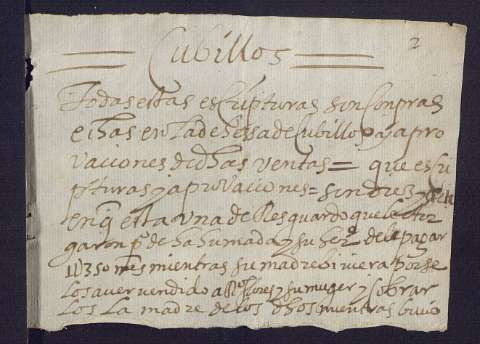 2
Cubillos
Todas estas escripturas son Compras
echas en la dehesa de Cubillos y apro
vaciones de dhas ventas = que escri
pturas y aprovaciones = son diez
en q esta una de Resguardo que le otor
garon p de hahumada y su her de le pagar
11U350 mrs mientras su madre biviera por se
los aver vendido a flores y su muger y Cobrar
los la madre de los dhos mientras bivio